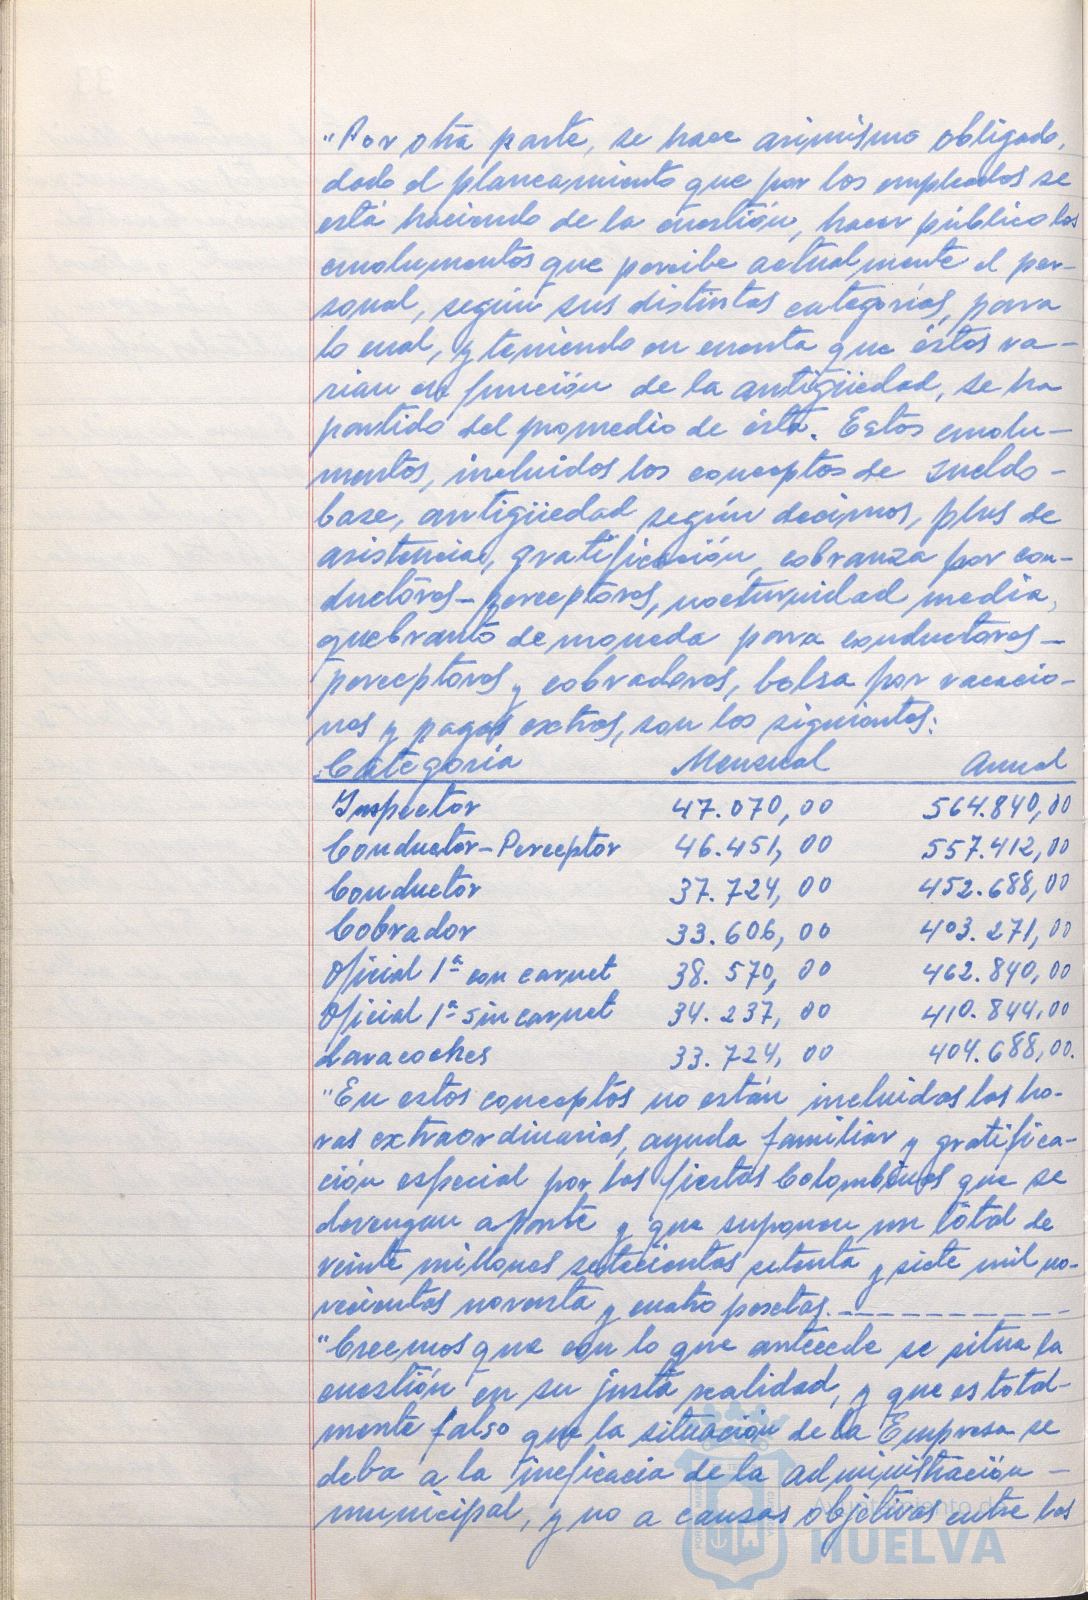 "Por otra parte, se hace asimismo obligado,
dado el planeamiento que por los empleados se
está haciendo de la cuestión, hacer público los
emolumentos que percibe actualmente el per-
sonal, según sus distintas categorías, para
lo cual, y teniendo en cuenta que éstos va-
rian en función de la antigüedad, se ha
partido del promedio de ésta. Estos emolu-
mentos, incluidos los conceptos de sueldo-
base, antigüedad según decimos, plus de
asistencia, gratificación, cobranza por con-
ductores-perceptores, nocturnidad media,
quebranto de moneda para conductores-
perceptores y cobradores, bolsa por vacacio-
nes y pagas extras, son los siguientes:
Categoría Mensual Anual
Inspector 47.070,00 564.840,00
Conductor-Perceptor 46.451,00 557.412,00
Conductor 37.724,00 452.688,00
Cobrador 33.606,00 403.271,00
Oficial 1ª con carnet 38.570,00 462.840,00
Oficial 1ª sin carnet 34.237,00 410.844,00
Lavacoches 33.724,00 404.688,00.
"En estos conceptos no están incluidas las ho-
ras extraordinarias, ayuda familiar y gratifica-
ción especial por las fiestas Colombinas que se
devengan aparte y que suponen un total de
veinte millones setecientas setenta y siete mil no-
vecientas noventa y cuatro pesetas. ----------
"Creemos que con lo que antecede se situa la
cuestión en su justa realidad, y que es total-
mente falso que la situación de la Empresa se
deba a la ineficacia de la administración -
municipal, y no a causas objetivas entre las
Ayuntamiento de
HUELVA